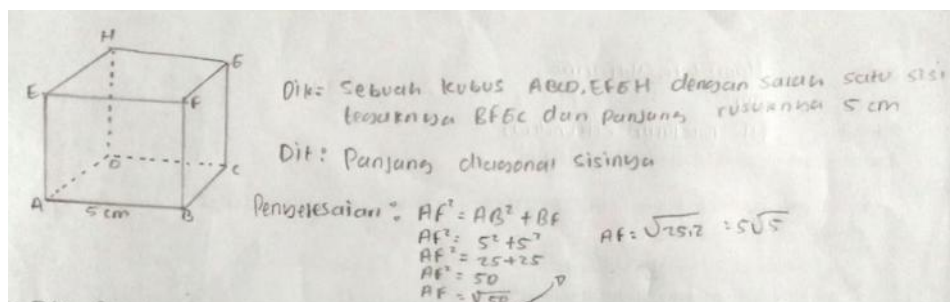 H
G
E
F
D
C
A
B
5 cm
Dik: Sebuah kubus ABCD.EFGH dengan salah satu sisi
tegaknya BFGC dan panjang rusuknya 5 cm
Dit: Panjang diagonal sisinya
Penyelesaian: AF² = AB² + BF
AF² = 5² + 5²
AF² = 25+25
AF² = 50
AF = √50
AF = √25.2 = 5√5